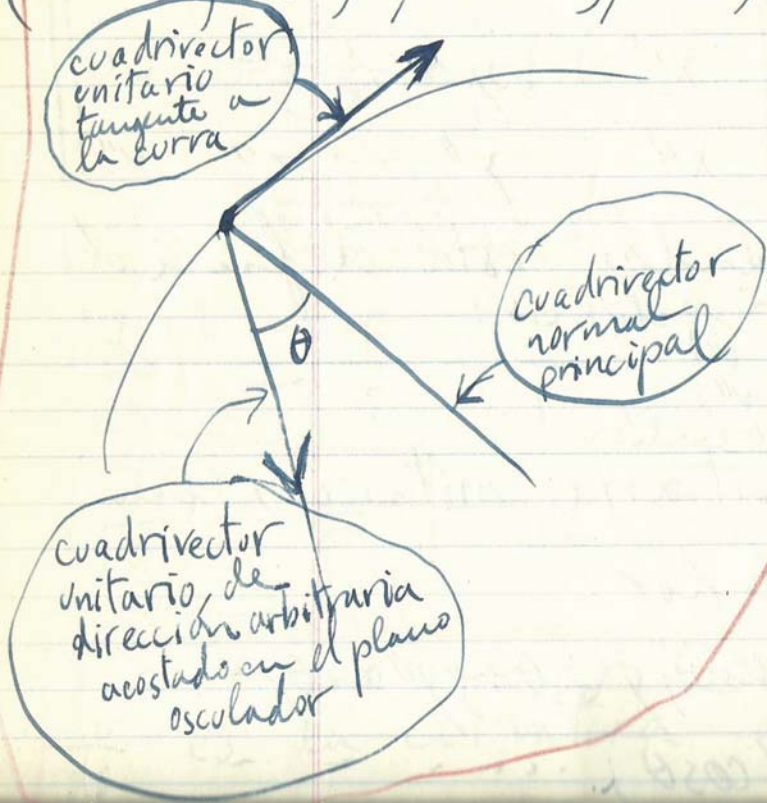 cuadrivector
unitario
tangente a
la curva
θ
cuadrivector
normal
principal
cuadrivector
unitario, de
dirección arbitraria
acostado en el plano
osculador
cos θ